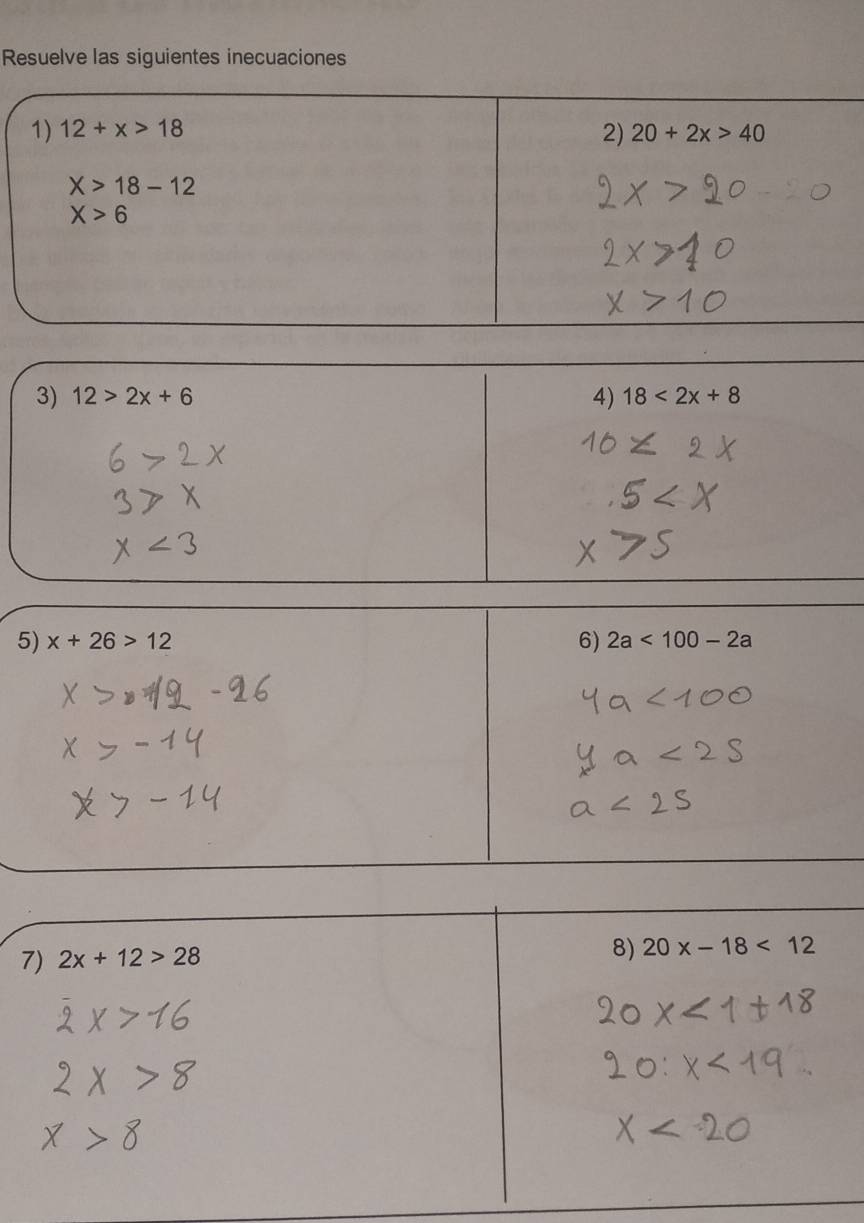 Resuelve las siguientes inecuaciones
1) 12 + x > 18
X > 18 – 12
X > 6
2) 20 + 2x > 40
2x > 20 - 20
2x > 10
x > 10
3) 12 > 2x + 6
6 > 2x
3 > x
x < 3
4) 18 < 2x + 8
10 < 2x
5 < x
x > 5
5) x + 26 > 12
x > 12 - 26
x > -14
x > -14
6) 2a < 100 – 2a
4a < 100
4 a < 25
a < 25
7) 2x + 12 > 28
2x > 16
2x > 8
x > 8
8) 20 x – 18 < 12
20 x < 1 + 18
20: x < 19
x < 20